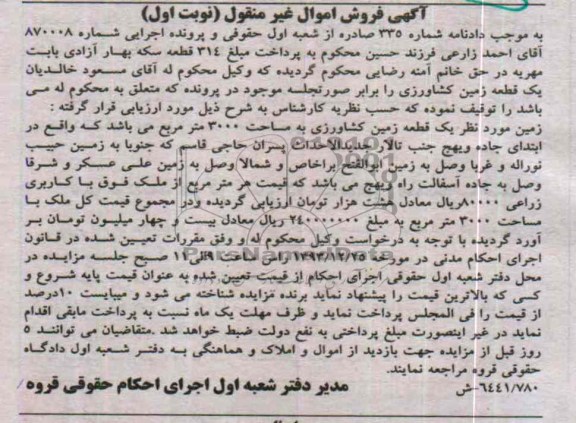 آگهی فروش اموال غیر منقول (نوبت اول)
به موجب دادنامه شماره ۳۳۵ صادره از شعبه اول حقوقی و پرونده اجرایی شماره ۸۷۰۰۰۸
آقای احمد زارعی فرزند حسین محکوم به پرداخت مبلغ ۳۱۴ قطعه سکه بهار آزادی بابت
مهریه در حق خانم آمنه رضایی محکوم گردیده که وکیل محکوم له آقای مسعود خالدیان
یک قطعه زمین کشاورزی را برابر صورتجلسه موجود در پرونده که متعلق به محکوم له می
باشد را توقیف نموده که حسب نظریه کارشناس به شرح ذیل مورد ارزیابی قرار گرفته :
زمین مورد نظر یک قطعه زمین کشاورزی به مساحت ۳۰۰۰ متر مربع می باشد که واقع در
ابتدای جاده ویهج جنب تالار جدیدالاحداث پسران حاجی قاسم که جنوبا به زمین حبیب
نوراله و غربا وصل به زمین ابوالفتح براخاص و شمالا وصل به زمین علی عسکر و شرقا
وصل به جاده آسفالت راه ویهج می باشد که قیمت هر متر مربع از ملک فوق با کاربری
زراعی ۸۰۰۰۰ریال معادل هشت هزار تومان ارزیابی گردیده ودر مجموع قیمت کل ملک با
مساحت ۳۰۰۰ متر مربع به مبلغ ۲۴۰۰۰۰۰۰۰ ریال معادل بیست و چهار میلیون تومان بر
آورد گردیده با توجه به درخواست وکیل محکوم له و وفق مقررات تعیین شده در قانون
اجرای احکام مدنی در مورخه ۱۳۹۳/۱۲/۲۵ راس ساعت ۹الی۱۱ صبح جلسه مزایده در
محل دفتر شعبه اول حقوقی اجرای احکام از قیمت تعیین شده به عنوان قیمت پایه شروع و
کسی که بالاترین قیمت را پیشنهاد نماید برنده مزایده شناخته می شود و میبایست ۱۰درصد
از قیمت را فی المجلس پرداخت نماید و ظرف مهلت یک ماه نسبت به پرداخت مابقی اقدام
نماید در غیر اینصورت مبلغ پرداختی به نفع دولت ضبط خواهد شد .متقاضیان می توانند ۵
روز قبل از مزایده جهت بازدید از اموال و املاک و هماهنگی به دفتر شعبه اول دادگاه
حقوقی قروه مراجعه نمایند.
مدیر دفتر شعبه اول اجرای احکام حقوقی قروه
۶۴۴۱/۷۸۰-ش